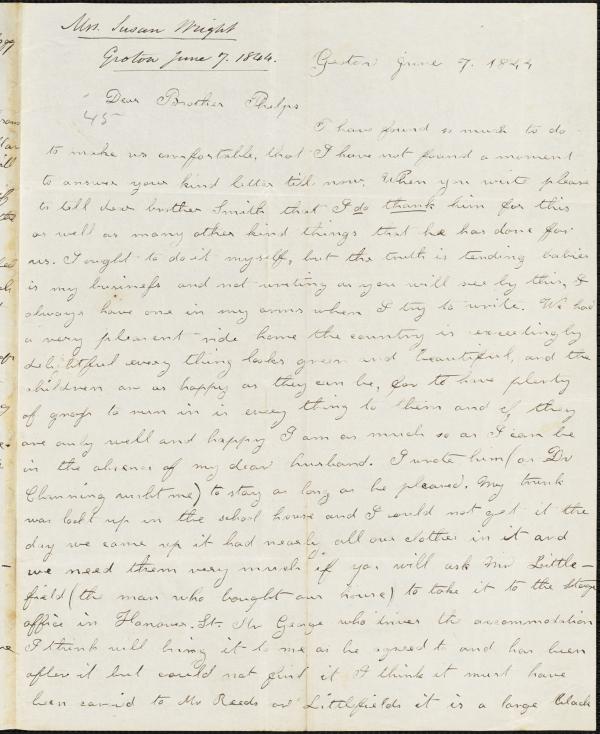 Mrs. Susan Wright
Groton June 7. 1844.
Groton June 7. 1844
Dear Brother Phelps
45
I have found so much to do
to make us comfortable, that I have not found a moment
to answer your kind letter till now. When you write please
to tell dear brother Smith that I do thank him for this
as well as many other kind things that he has done for
us. I ought to do it myself, but the truth is tending babies
is my business and not writing as you will see by this, I
always have one in my arms when I try to write. We had
a very pleasent ride home the country is exceedingly
delightful every thing looks green and beautiful, and the
children are as happy as they can be, for to have plenty
of grass to run in is every thing to them and if they
are only well and happy I am as much so as I can be
in the absence of my dear husband. I wrote him (as Dr
Channing wisht me) to stay as long as he pleased. My trunk
was lockt up in the school house and I could not get it the
day we came up it had nearly all our clothes in it and
we need them very much if you will ask Mr Little-
field (the man who bought our house) to take it to the stage
office in Hanover. St. Mr George who drives the accommodation
I think will bring it to me as he agreed to and has been
after it but could not find it I think it must have
been carried to Mr Reeds or Littlefields it is a large black